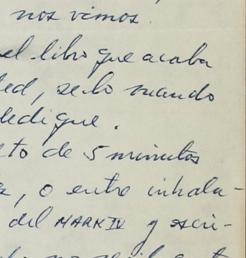 nos vimos.
el libro que acaba
ted, se lo mando
dedique.
to de 5 minutos
, o entre inhala-
del MARK IV y escri-